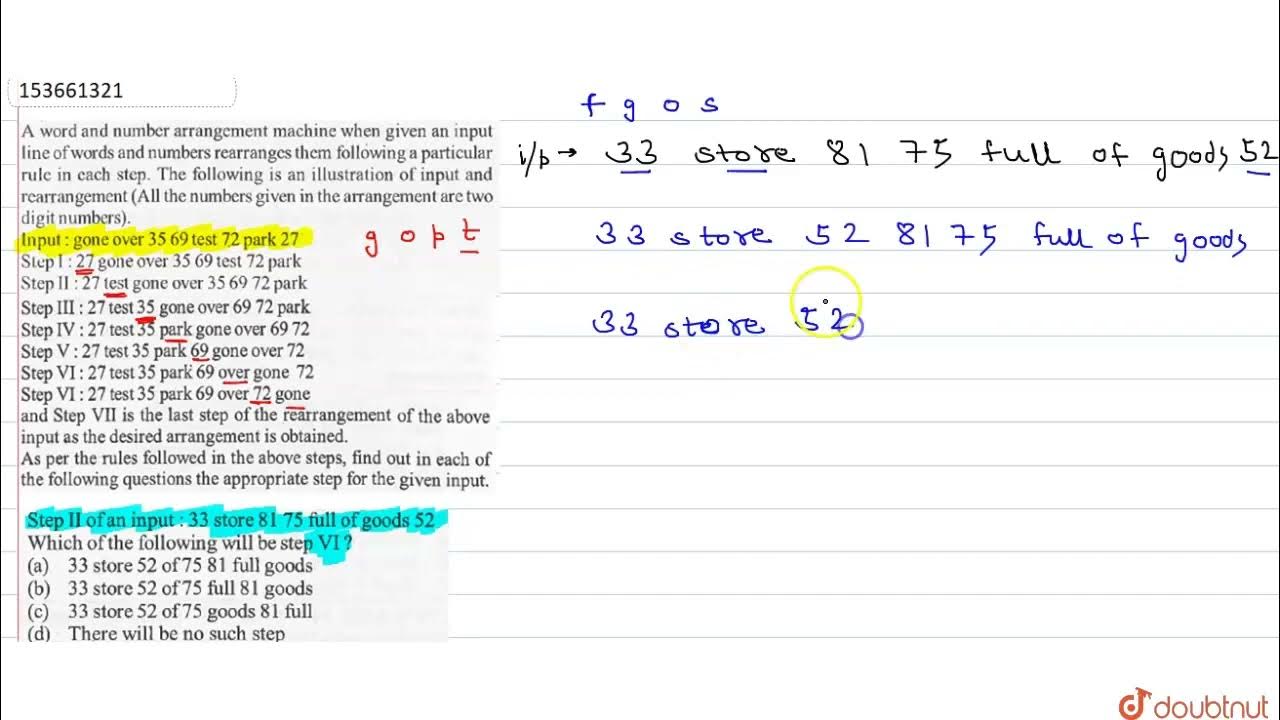 153661321
A word and number arrangement machine when given an input
line of words and numbers rearranges them following a particular
rule in each step. The following is an illustration of input and
rearrangement (All the numbers given in the arrangement are two
digit numbers).
Input : gone over 35 69 test 72 park 27
Step I : 27 gone over 35 69 test 72 park
Step II : 27 test gone over 35 69 72 park
Step III : 27 test 35 gone over 69 72 park
Step IV : 27 test 35 park gone over 69 72
Step V : 27 test 35 park 69 gone over 72
Step VI : 27 test 35 park 69 over gone 72
Step VI : 27 test 35 park 69 over 72 gone
and Step VII is the last step of the rearrangement of the above
input as the desired arrangement is obtained.
As per the rules followed in the above steps, find out in each of
the following questions the appropriate step for the given input.
Step II of an input : 33 store 81 75 full of goods 52
Which of the following will be step VI ?
(a) 33 store 52 of 75 81 full goods
(b) 33 store 52 of 75 full 81 goods
(c) 33 store 52 of 75 goods 81 full
(d) There will be no such step
g o p t
f g o s
i/p → 33 store 81 75 full of goods 52
33 store 52 81 75 full of goods
33 store 52
doubtnut